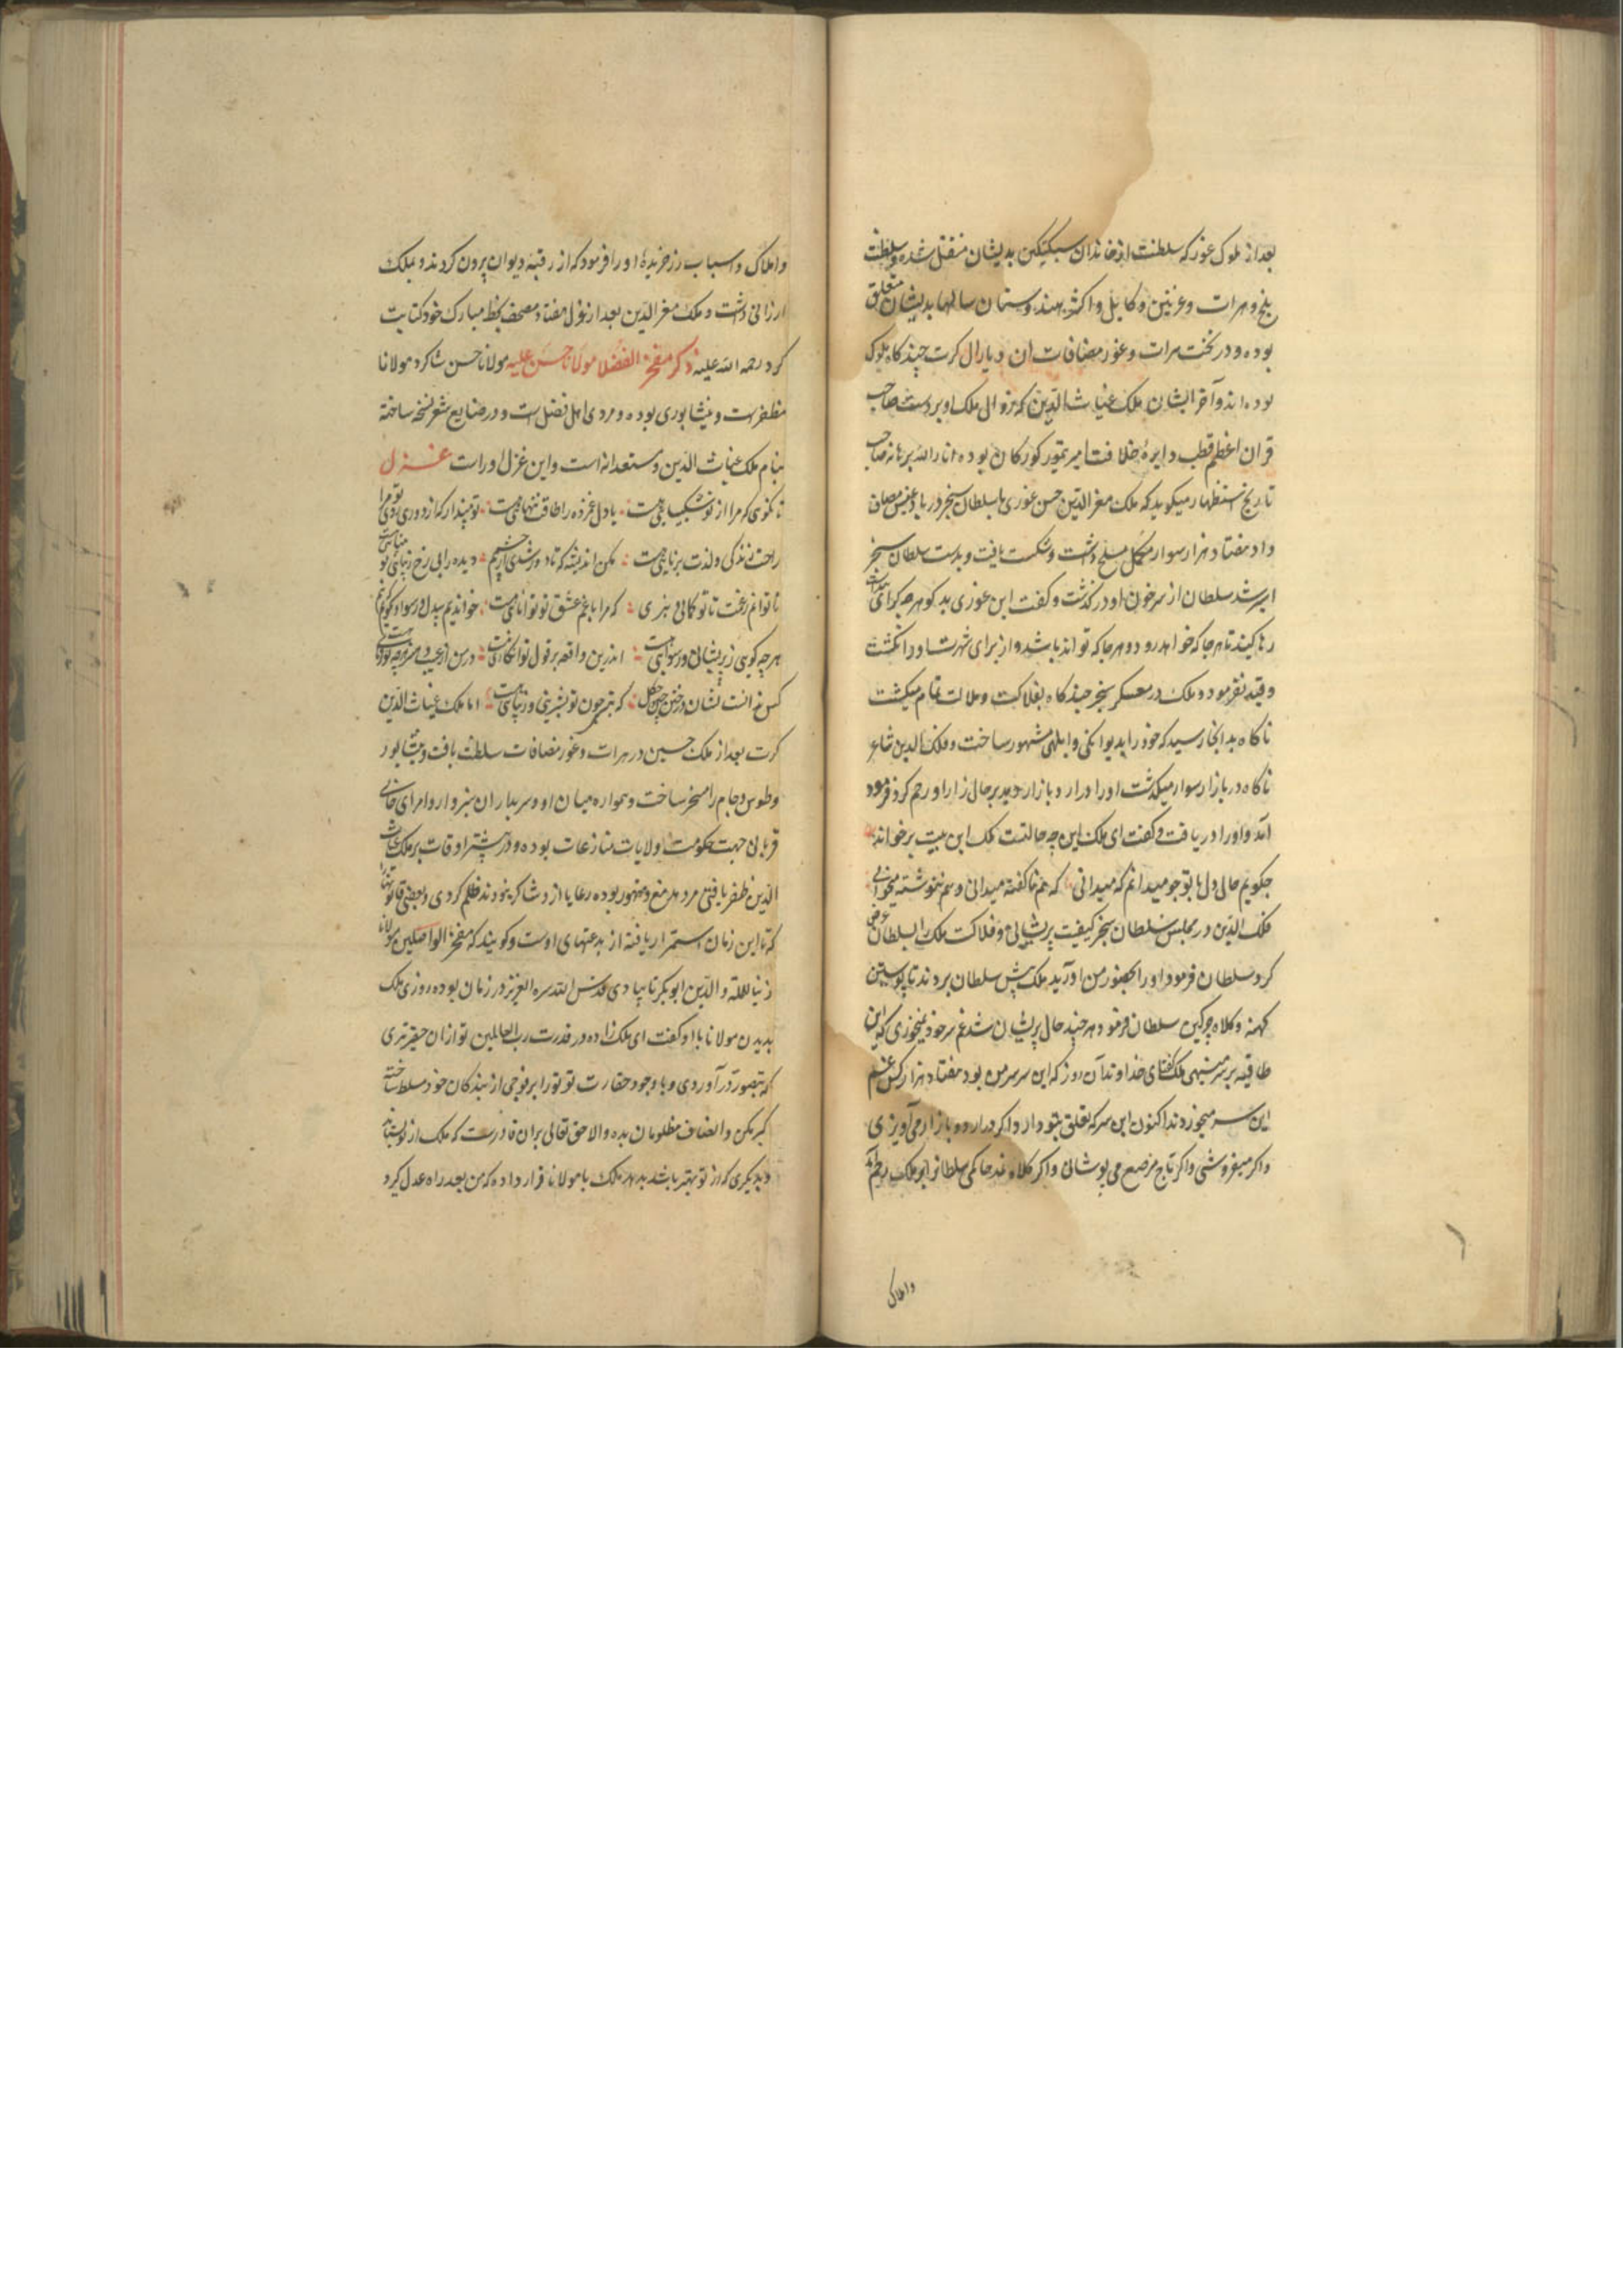 بعد از ملوک غور که سلطنت از خاندان سبکتکین بدیشان منتقل شده و سلطنت
بلخ و هرات و غزنین و کابل و اکثر هندوستان سالها بدیشان متعلق
بوده و در تخت هرات و غور و مضافات ان دیار ال کرت چند کاه ملوک
بوده اند و آخر ایشان ملک غیاث الدین که زوال ملک او بر دست صاحب
قران اعظم قطب دایرهٔ خلافت امیر تیمور کورکان بوده انار الله برهانه صاحب
تاریخ استظهار میکوید که ملک معز الدین حسن غوری با سلطان سنجر در بادغیس مصاف
داد هفتاد هزار سوار مکمل مسلح داشت و شکست یافت و بدست سلطان سنجر
اسیر شد سلطان از سر خون او در کذشت و کفت این غوری بد کوهر چه کرای
رها کنید تا هر جا که خواهد رود و هر جا که تواند باشد و از برای شهرت او را نکشت
و قید نفرمود و ملک در معسکر سنجر چند کاه بفلاکت و ملالت تمام میکشت
تا کاه بدانجا رسید که خود را بدیوانکی و ابلهی مشهور ساخت و فلک الدین شاعر
ناکاه در بازار سوار میکذشت او را در اردو بازار دید بر حال زار او رحم کرد فرود
آمد و او را دریافت و کفت ای ملک این چه حالتست ملک این بیت برخواند
چکویم حال دل با تو چو میدانم که میدانی که هم ناکفته میدانی و هم ننوشته میخوانی
فلک الدین در مجلس سلطان سنجر کیفیت پریشانی و فلاکت ملک را بسلطان عرض
کرد سلطان فرمود او را بحضور من اورید ملک پیش سلطان بردند تا پوستین
کهنه و کلاه چرکین سلطان فرمود هر چند حال پریشان شد غم سر خود نمیخوری که این
طاقیه بر سر مینهی ملک کفت ای خداوند آن روز که این سر سر من بود هفتاد هزار کس غم
این سر میخوردند اکنون این سر که تعلق بتو دارد اکر در اردو بازار می آویزی
و اکر میفروشی و اکر تاج مرصع می پوشانی و اکر کلاه نمد حاکمی سلطانرا بر ملک رحم آمد
واملاک
واملاک و اسباب زر خریدهٔ او را فرمود که از رقبهٔ دیوان بیرون کردند و بملک
ارزانی داشت و ملک معز الدین بعد از عزل هفتاد مصحف بخط مبارک خود کتابت
کرد رحمه الله علیه ذکر مفخر الفضلا مولانا حسن علیه مولانا حسن شاکرد مولانا
مظفر است و نیشابوری بوده و مردی اهل فضل است و در صنایع شعر نسخه ساخته
بنام ملک غیاث الدین و مستعدانه است و این غزل اوراست غزل
تا نکوی که مرا از تو شکیبایی هست یا دل غمزده را طاقت تنهایی هست تو مپندار که از دوری روی تو مرا
راحت زندکی و لذت برنایی هست مکن اندیشه که تا دور شدی از چشمم دیده را بی رخ زیبای تو بینایی هست
ناتوانم ز غمت تا تو کمانی نبری که مرا با غم عشق تو توانایی هست خواندیم بیدل و رسوا و نکویم نیم
هر چه کویی ز پریشانی و رسوایی هست اندرین واقعه بر قول تو انکاری نیست در من از عیب و هنر هر چه تو فرمایی هست
کس ندانست نشان در ختن چین و چکل که بتی چون تو بشیرینی و زیبایی هست اما ملک غیاث الدین
کرت بعد از ملک حسین در هرات و غور و مضافات سلطنت یافت و نیشابور
و طوس و جام را مسخر ساخت و همواره میان او و سربداران سبزوار و امرای جانی
قربانی جهت حکومت اولایات منازعات بوده و در بیشتر اوقات بر ملک غیاث
الدین ظفر یافتی مردم رعایا از و شاکر نبودند ظلم کردی و بعضی قانونها
که تا این زمان استمرار یافته از بدعتهای اوست و کویند که مفخر الواصلین مولانا
زین المله و الدین ابوبکر تایبادی قدس الله سره العزیز در زمان بوده روزی ملک
بدیدن مولانا با او کفت ای ملک زاده در قدرت رب العالمین تو ازان حقیرتری
که بتصور در آوردی و با وجود حقارت تو تو را بر فوجی از بندکان خود مسلط ساخته
کبر مکن و انصاف مظلومان بده والا حق تعالی بران قادرست که ملک از تو بستاند
و بدیکری که از تو بهتر باشد بدهد ملک با مولانا قرار داده که من بعد راه عدل کیرد